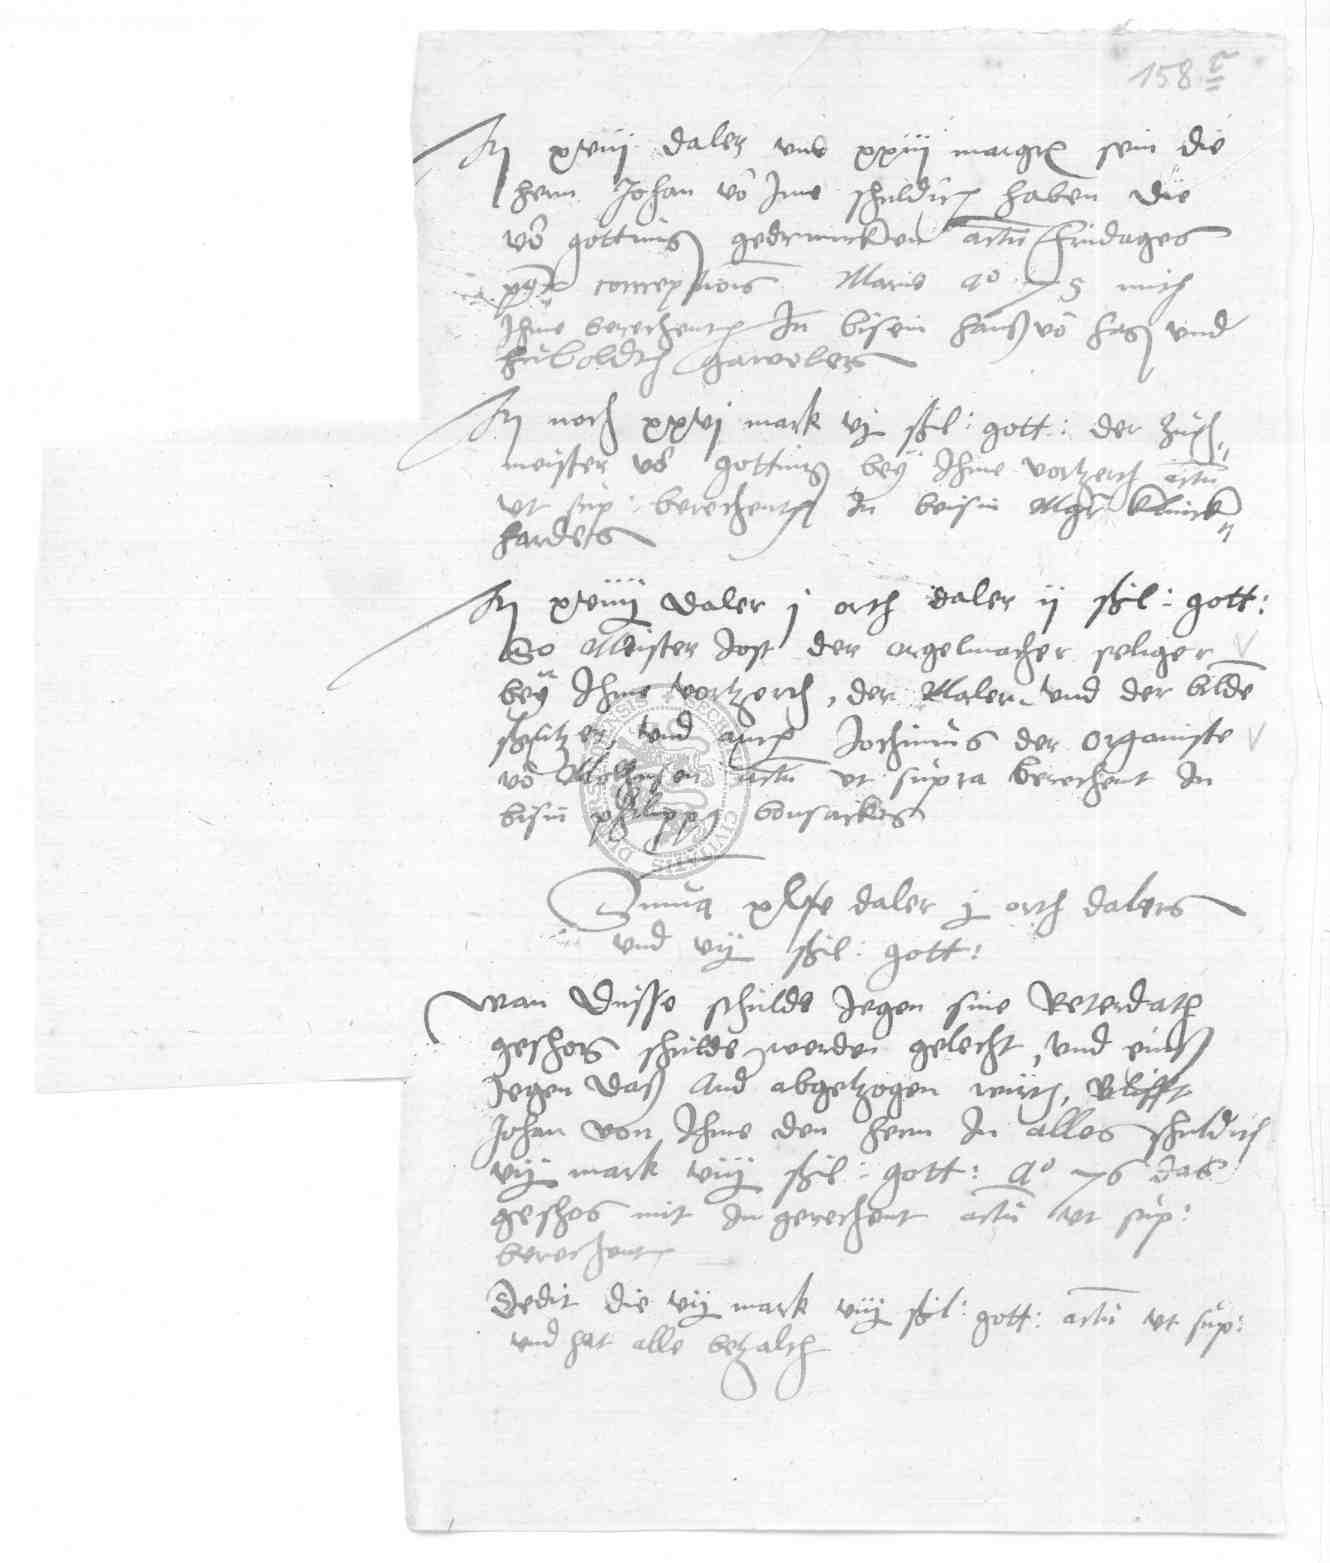 158 r
It xviij daler und xxiij margr sein die
hern Johan vo Ime schuldich haben die
vo gottins gedruncken actu Fridages
post conceptiois Marie ao 75 mith
Ihme berechent In bisein Hanß vo Haß und
Huboldth Gawelers
It noch xxvj mark vj ßkil: gott: der Zuch„
meister vo gottins bey Ihme vortzerth actu
ut sup: berechent In beisin Mgr Klinck„
harders
It xviiij daler j orth daler ij ßkil: gott:
So Meister Jost der orgelmacher seliger
bey Ihme vortzerth, der Maler und der bilde
schnitzer, und auch Jochimus der Organiste
vo Molhusen actu ut supra berechent In
bisin philippg bonsackes
Suma daler j orth dalers
und vij ßkil: gott:
wan Duisse schulde Jegen sine
geschos schulde werden gelecht, und einß
Jegen daß And abgetzogen wirth, Blifft
Johan von Ihme den hern In alles schuldich
vij mark viij ßkil: gott: Ao 76 das
geschos mit In gerechent actu ut sup:
berechent
Dedit die vij mark viij ßkil: gott: actu ut sup:
und hat alle betzalth